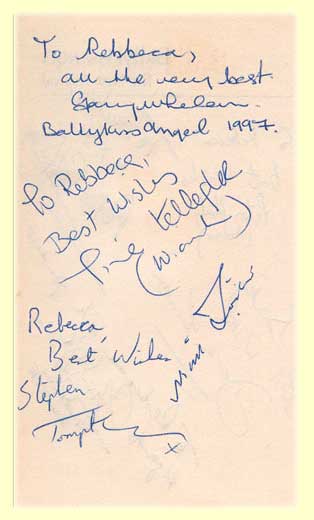 To Rebbeca,
all the very best.
Gary Whelan.
Ballykissangel 1997.
To Rebbeca,
Best Wishes
Tina Kellegher
(Niamh)
Rebecca
Best Wishes
Stephen